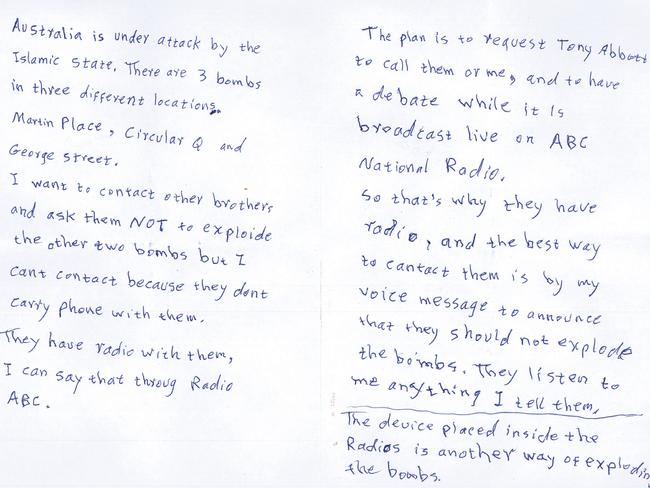 Australia is under attack by the
Islamic state. There are 3 bombs
in three different locations.
Martin Place, Circular Q and
George street.
I want to contact other brothers
and ask them NOT to exploide
the other two bombs but I
cant contact because they dont
carry phone with them.
They have radio with them,
I can say that throug Radio
ABC.
The plan is to request Tony Abbott
to call them or me, and to have
a debate while it is
broadcast live on ABC
National Radio.
So that's why they have
radio, and the best way
to cantact them is by my
voice message to announce
that they should not explode
the bombs. They listen to
me anything I tell them.
The device placed inside the
Radios is another way of explodin
the bombs.